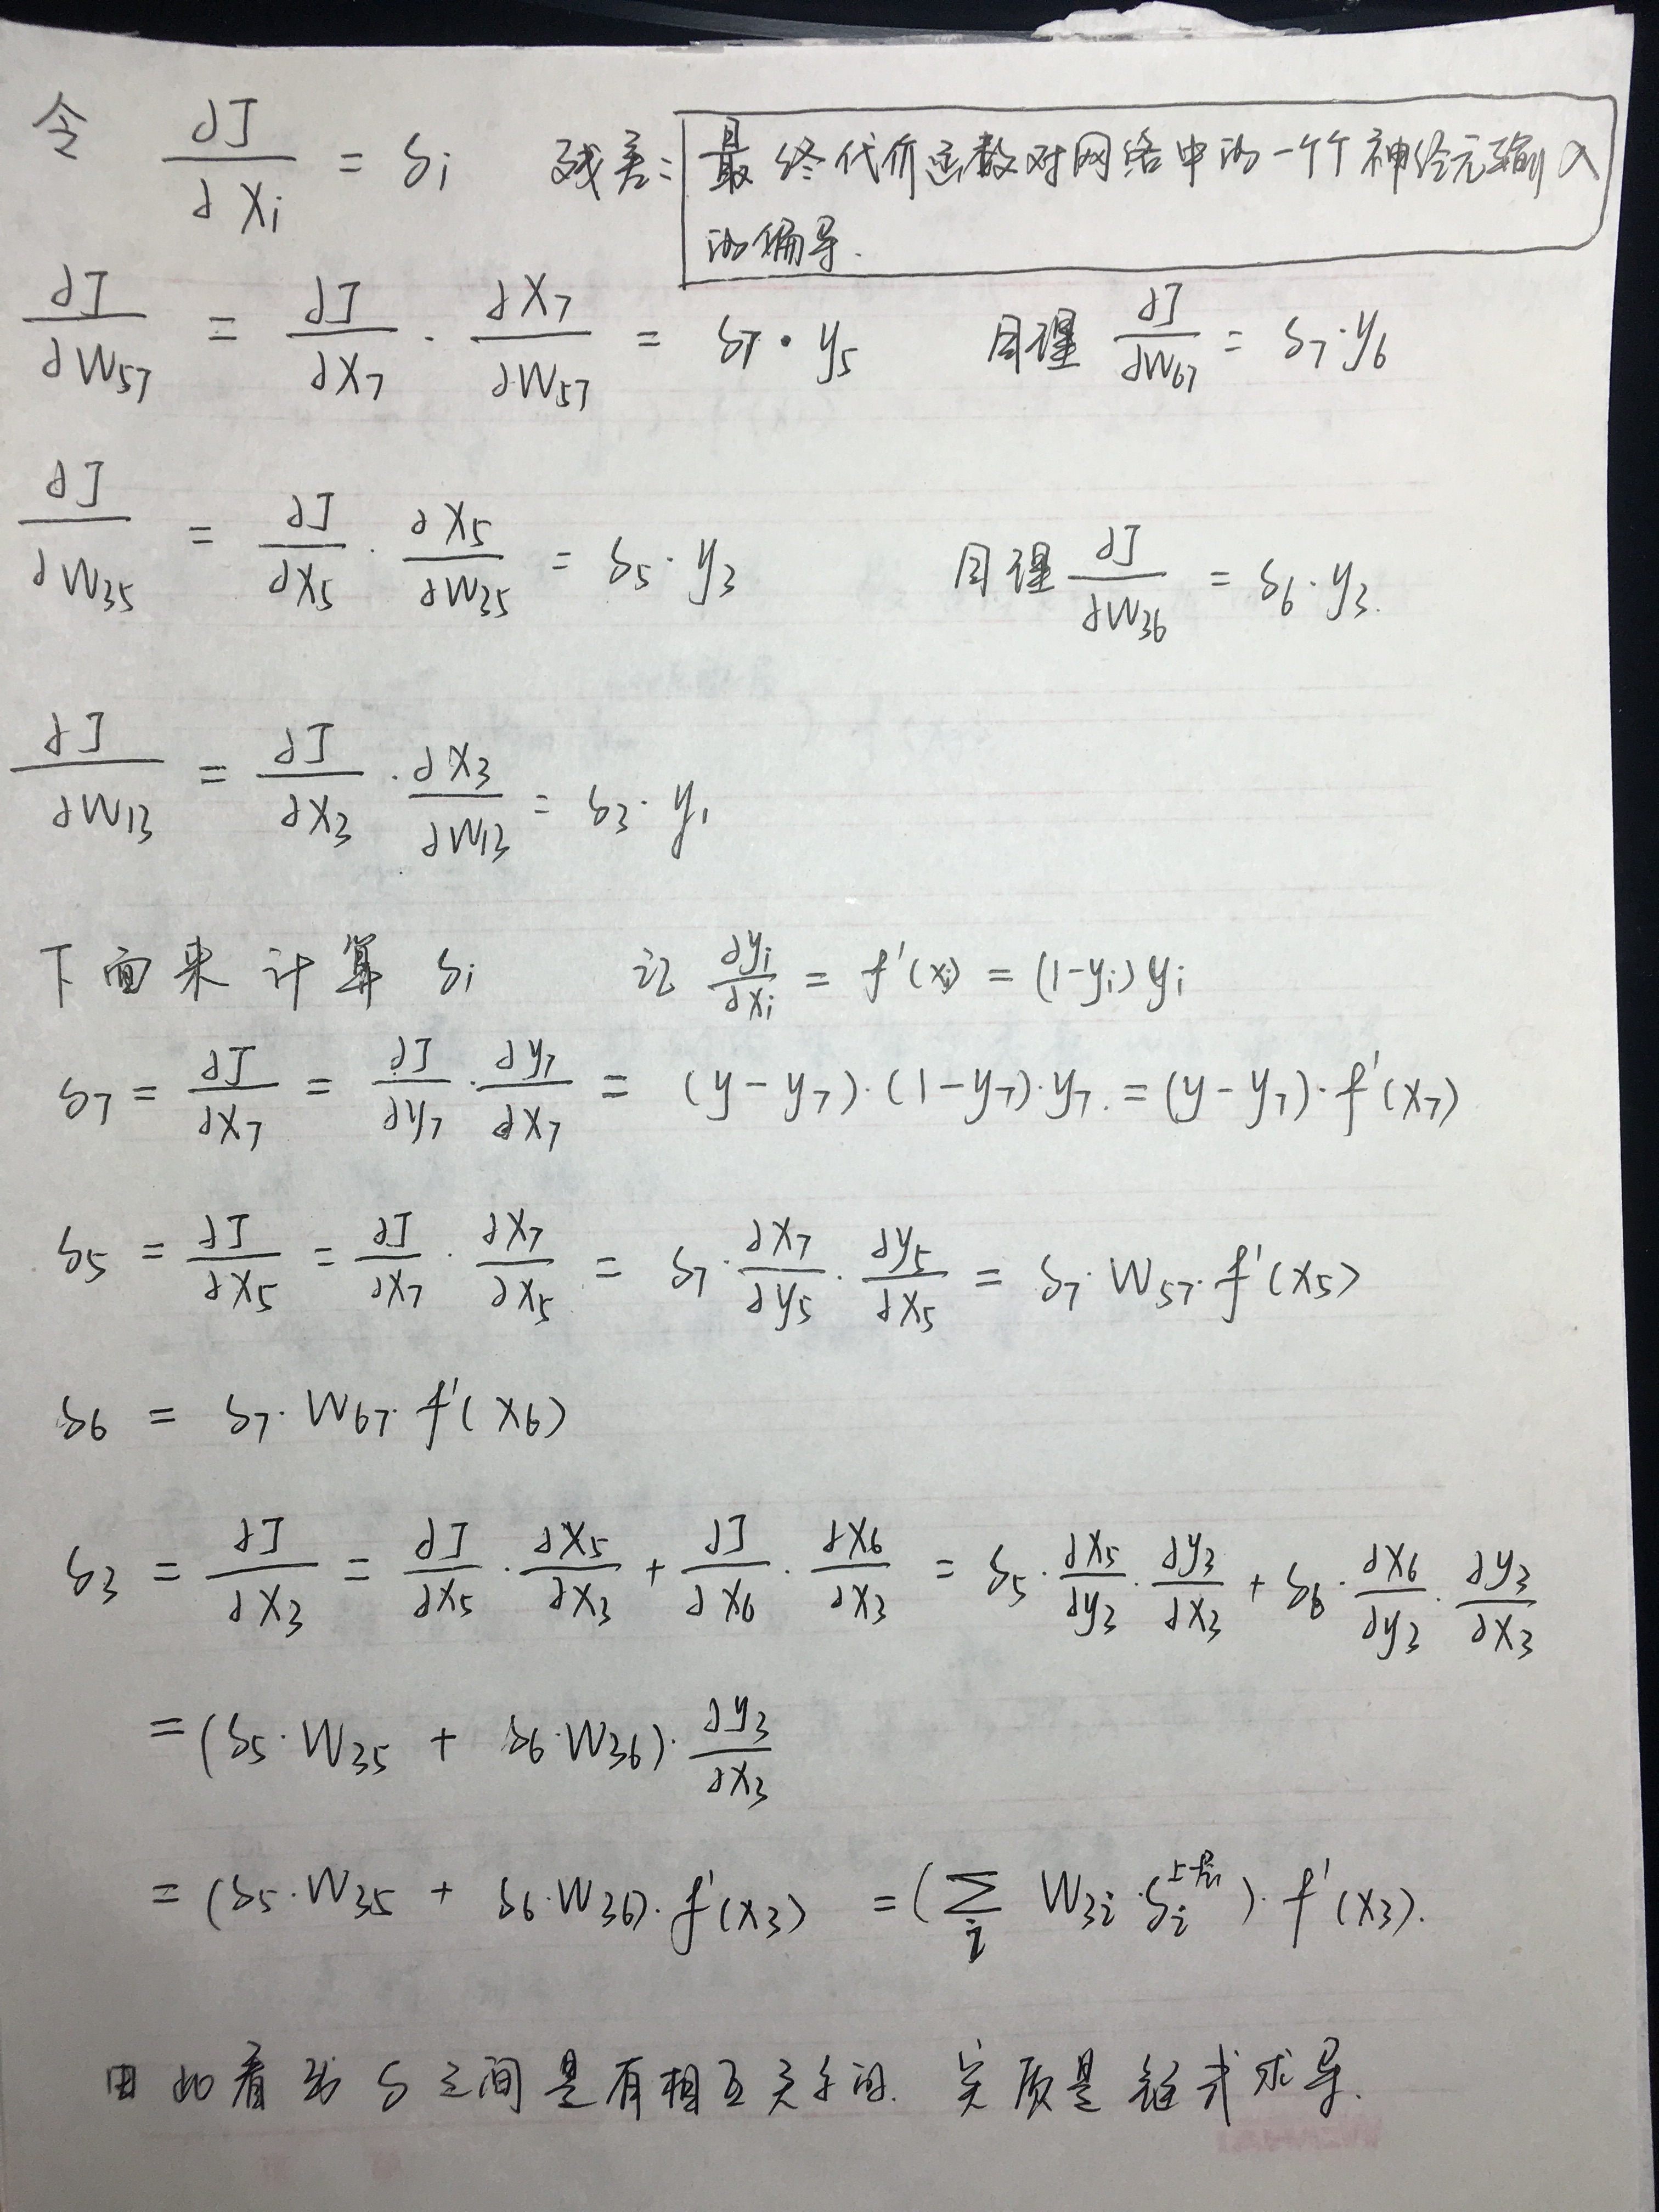 令 ∂J/∂X_i = δ_i 残差: 最终代价函数对网络中的一个个神经元输入
的偏导.
∂J/∂W_57 = ∂J/∂X_7 · ∂X_7/∂W_57 = δ_7 · y_5 同理 ∂J/∂W_67 = δ_7 · y_6
∂J/∂W_35 = ∂J/∂X_5 · ∂X_5/∂W_35 = δ_5 · y_3 同理 ∂J/∂W_36 = δ_6 · y_3.
∂J/∂W_13 = ∂J/∂X_3 · ∂X_3/∂W_13 = δ_3 · y_1
下面来计算 δ_i 记 ∂y_i/∂x_i = f'(x_i) = (1-y_i) y_i
δ_7 = ∂J/∂X_7 = ∂J/∂y_7 · ∂y_7/∂X_7 = (y - y_7) · (1 - y_7) · y_7. = (y - y_7) · f'(X_7)
δ_5 = ∂J/∂X_5 = ∂J/∂X_7 · ∂X_7/∂X_5 = δ_7 · ∂X_7/∂y_5 · ∂y_5/∂X_5 = δ_7 · W_57 · f'(X_5)
δ_6 = δ_7 · W_67 · f'(X_6)
δ_3 = ∂J/∂X_3 = ∂J/∂X_5 · ∂X_5/∂X_3 + ∂J/∂X_6 · ∂X_6/∂X_3 = δ_5 · ∂X_5/∂y_3 · ∂y_3/∂X_3 + δ_6 · ∂X_6/∂y_3 · ∂y_3/∂X_3
= (δ_5 · W_35 + δ_6 · W_36) · ∂y_3/∂X_3
= (δ_5 · W_35 + δ_6 · W_36) · f'(X_3) = (∑_i W_3i · δ_i^上层) · f'(X_3).
由此看到 δ 之间是有相互关系的. 实质是链式求导.